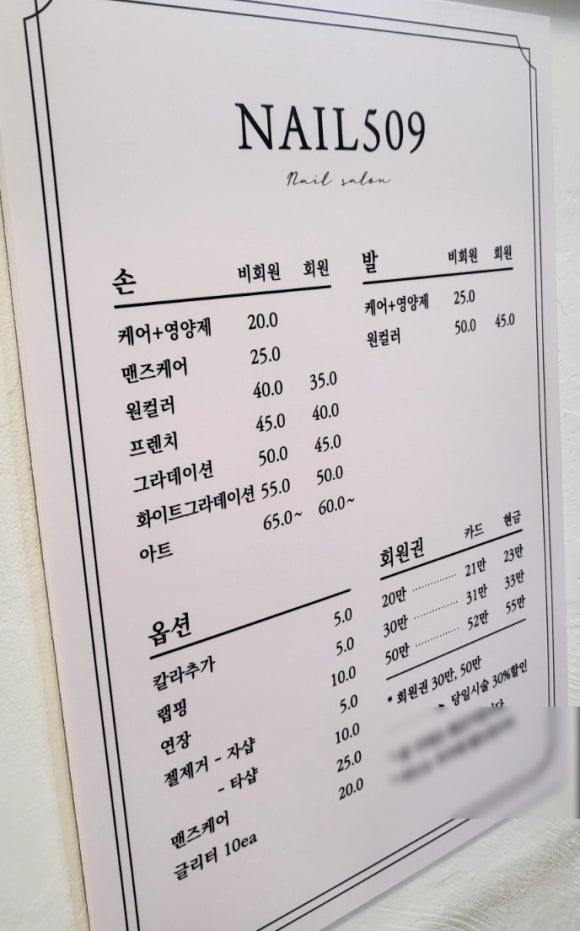 NAIL509
Nail salon
손 비회원 회원
케어+영양제 20.0
맨즈케어 25.0
원컬러 40.0 35.0
프렌치 45.0 40.0
그라데이션 50.0 45.0
화이트그라데이션 55.0 50.0
아트 65.0~ 60.0~
발 비회원 회원
케어+영양제 25.0
원컬러 50.0 45.0
옵션
칼라추가 5.0
랩핑 5.0
연장 10.0
젤제거 - 자샵 5.0
- 타샵 10.0
맨즈케어 25.0
글리터 10ea 20.0
회원권 카드 현금
20만 ············ 21만 23만
30만 ············ 31만 33만
50만 ············ 52만 55만
* 회원권 30만, 50만
당일시술 30%할인